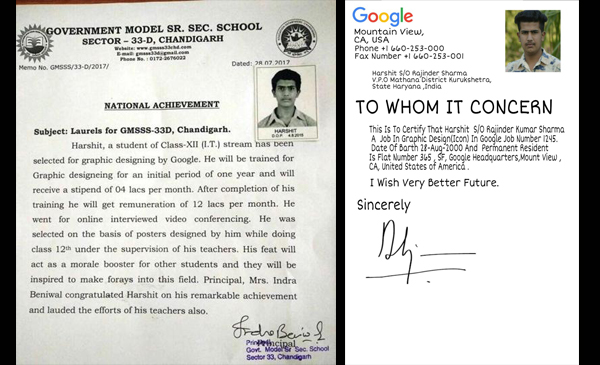 GOVERNMENT MODEL SR. SEC. SCHOOL
SECTOR – 33-D, CHANDIGARH
Website: www.gmsss33chd.com
E-mail: gmsss33d@gmail.com
Phone No. : 0172-2676022
Memo No. GMSSS/33-D/2017/
Dated: 28.07.2017
HARSHIT
D.O.P. 4.8.2015
NATIONAL ACHIEVEMENT
Subject: Laurels for GMSSS-33D, Chandigarh.
Harshit, a student of Class-XII (I.T.) stream has been
selected for graphic designing by Google. He will be trained for
Graphic designeing for an initial period of one year and will
receive a stipend of 04 lacs per month. After completion of his
training he will get remuneration of 12 lacs per month. He
went for online interviewed video conferencing. He was
selected on the basis of posters designed by him while doing
class 12th under the supervision of his teachers. His feat will
act as a morale booster for other students and they will be
inspired to make forays into this field. Principal, Mrs. Indra
Beniwal congratulated Harshit on his remarkable achievement
and lauded the efforts of his teachers also.
Principal
Principal
Govt. Model Sr. Sec. School
Sector 33, Chandigarh
Google
Mountain View,
CA, USA
Phone +1 660-253-000
Fax Number +1 660-253-001
Harshit S/O Rajinder Sharma
V.P.O Mathana District Kurukshetra,
State Haryana ,India
TO WHOM IT CONCERN
This Is To Certify That Harshit S/O Rajinder Kumar Sharma
A Job In Graphic Design(Icon) In Google Job Number 1245.
Date Of Barth 28-Aug-2000 And Permanent Resident
Is Flat Number 365 , SF, Google Headquarters,Mount View ,
CA, United States of America .
I Wish Very Better Future.
Sincerely